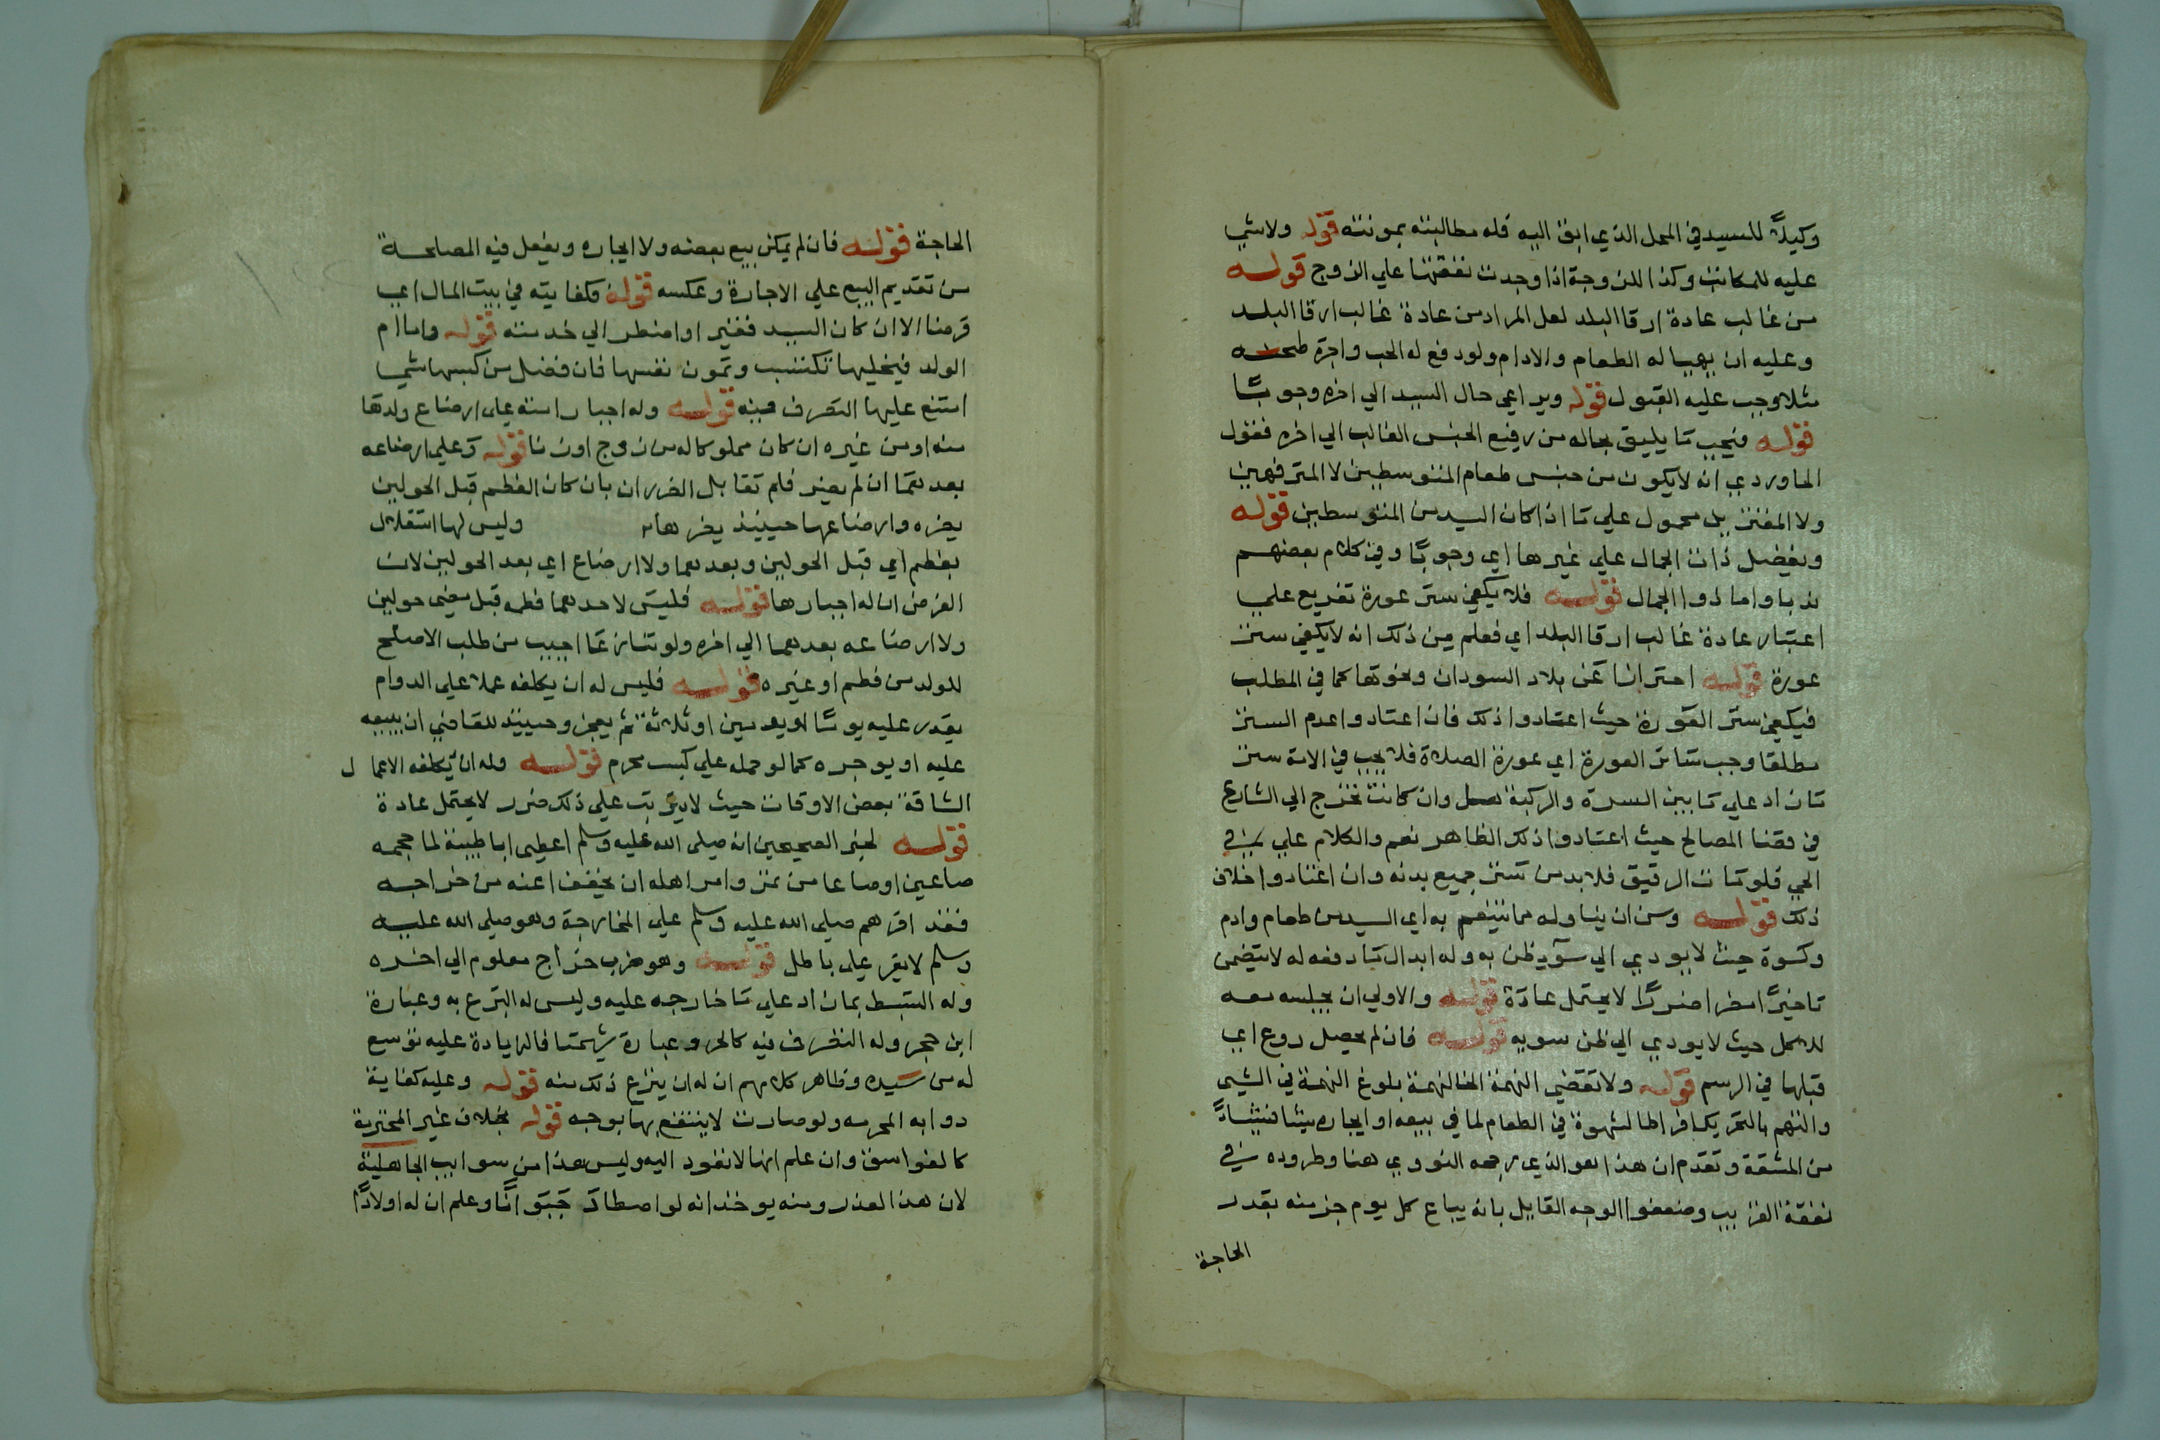 وكيلاً للسيد في المحل الذي ابق اليه فله مطالبته بمونته قوله ولا شي
عليه للمكاتب وكذا الزوجة اذا وجدت نفقتها علي الزوج قوله
من غالب عادة ارقا البلد لعل المراد من عادة غالب ارقا البلد
وعليه ان يهيا له الطعام والادام ولو دفع له الحب واجرة طحنه
مثلا وجب عليه القبول قوله ويراعي حال السيد الي اخره وجوباً
قوله فيجب ما يليق بحاله من رفيع الجنس الغالب الي اخره فقول
الماوردي انه لا يكون من جنس طعام المتوسطين لا المترفهين
ولا المقتر بل محمول علي ما اذا كان السيد من المتوسطين قوله
ويفضل ذات الجمال علي غيرها اي وجوبًا وفي كلام بعضهم
ندبا واما ذوا الجمال قوله فلا يكفي ستر عورة تفريع علي
اعتبار عادة غالب ارقا البلد اي فعلم من ذلك انه لا يكفي ستر
عورة قوله احترازا عن بلاد السودان ونحوها كما في المطلب
فيكفي ستر العورة حيث اعتادوا ذلك فان اعتادوا عدم الستر
مطلقا وجب ساتر العورة اي عورة الصلاة فلا يجب في الامة ستر
ما زاد علي ما بين السرة والركبة وان كانت تخرج الي الشارع
في قضا المصالح حيث اعتادوا ذلك الظاهر نعم والكلام علي في
الحي فلو مات الرقيق فلا بد من ستر جميع بدنه وان اعتادوا خلاف
ذلك قوله وسن ان يناوله مما يتنعم به اي السيد من طعام وادم
وكسوة حيث لا يودي الي سوء ظن به وله ابدال ما دفعه له لا يتضمن
تاخيرًا مضرا ضررًا لا يحتمل عادة قوله والاولي ان يجلسه معه
للاكل حيث لا يودي الي ظن سوبه قوله فان لم يحصل روغ اي
قبلها في الرسم قوله ولا تقضي النهمة الخ النهمة بلوغ الهمة في الشي
والنهم بالتحريك افراط الشهوة في الطعام لما في بيعه او ايجاره شيئا فشيئاً
من المشقة وتقدم ان هذا هو الذي رجحه النووي هنا وطروده في
نفقة القريب وضعفوا الوجه القايل بانه يباع كل يوم جزء منه بقدر
الحاجة
الحاجة قوله فان لم يمكن بيع بعضه ولا ايجاره ويفعل فيه المصلحة
من تقديم البيع علي الاجارة وعكسه قوله فكفايته في بيت المال اي
قرضا الا ان كان السيد فقير او اضطر الي خدمته قوله واما ام
الولد فيخليها تكتسب وتمون نفسها فان فضل من كسبها شي
امتنع عليها التصرف فيه قوله وله اجبار امته علي ارضاع ولدها
منه او من غيره ان كان مملوكا له من زوج او زنا قوله وعلي ارضاعه
بعدهما ان لم يضر فلم تقابل الضرران بان كان الفطم قبل الحولين
يضره وارضاعها حينيذ يضرها وليس لها استقلال
بفطم اي قبل الحولين وبعدهما ولا ارضاع اي بعد الحولين لان
الغرض ان له اجبارها قوله فليس لاحدهما فطمه قبل مضي حولين
ولا ارضاعه بعدهما الي اخره ولو تنازعا اجيب من طلب الاصلح
للولد من فطم او غيره قوله فليس له ان يكلفه عملا علي الدوام
يقدر عليه يوما او يومين او ثلاثة ثم يعجز وحينيذ للقاضي ان يبيعه
عليه او يوجره كما لو حمله علي كسب محرم قوله وله ان يكلفه الاعمال
الشاقة بعض الاوقات حيث لا يترتب علي ذلك ضرر لا يحتمل عادة
قوله لخبر الصحيحين انه صلى الله عليه وسلم اعطى ابا طيبة لما حجمه
صاعين او صاعا من تمر وامر اهله ان يخففوا عنه من خراجه
فقد اقرهم صلى الله عليه وسلم علي المخارجة وهو صلى الله عليه
وسلم لا يقر علي باطل قوله وهو ضرب خراج معلوم الي اخره
وله التبسط بما زاد علي ما خارجه عليه وليس له التبرع به وعبارة
ابن حجر وله التصرف فيه كالحر وعبارة فالزيادة عليه توسع
له من سيده وظاهر كلامهم ان له ان ينزع ذلك منه قوله وعليه كفاية
دوابه المحرمه ولو صارت لا ينتفع بها بوجه قوله بخلاف غير المحترمة
كالفواسق وان علم انها لا تعود اليه وليس هذا من سوايب الجاهلية
لان هذا العذر ومنه يوخذ انه لو اصطاد حَيَوانًا وعلم ان له اولادًا